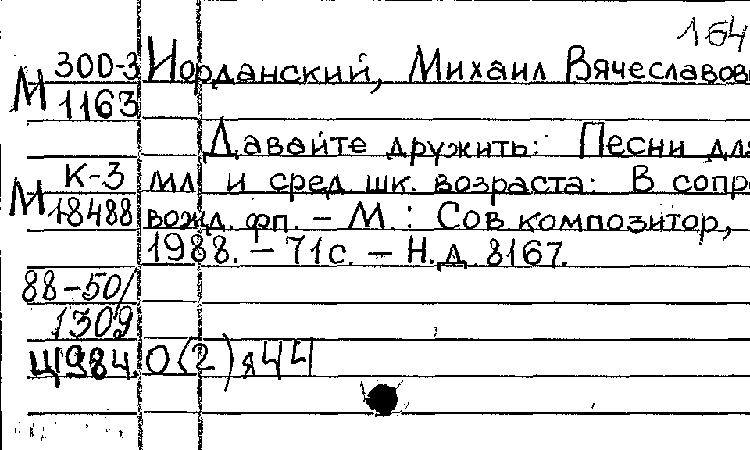 164
М 300-3 Иорданский, Михаил Вячеславов
1163
Давайте дружить: Песни для
М К-3 мл. и сред. шк. возраста: В сопро
18488 вожд. фп. – М.: Сов композитор,
1988. – 71с. – Н.д. 8167.
88-50/
1309
Щ984.0(2)я44